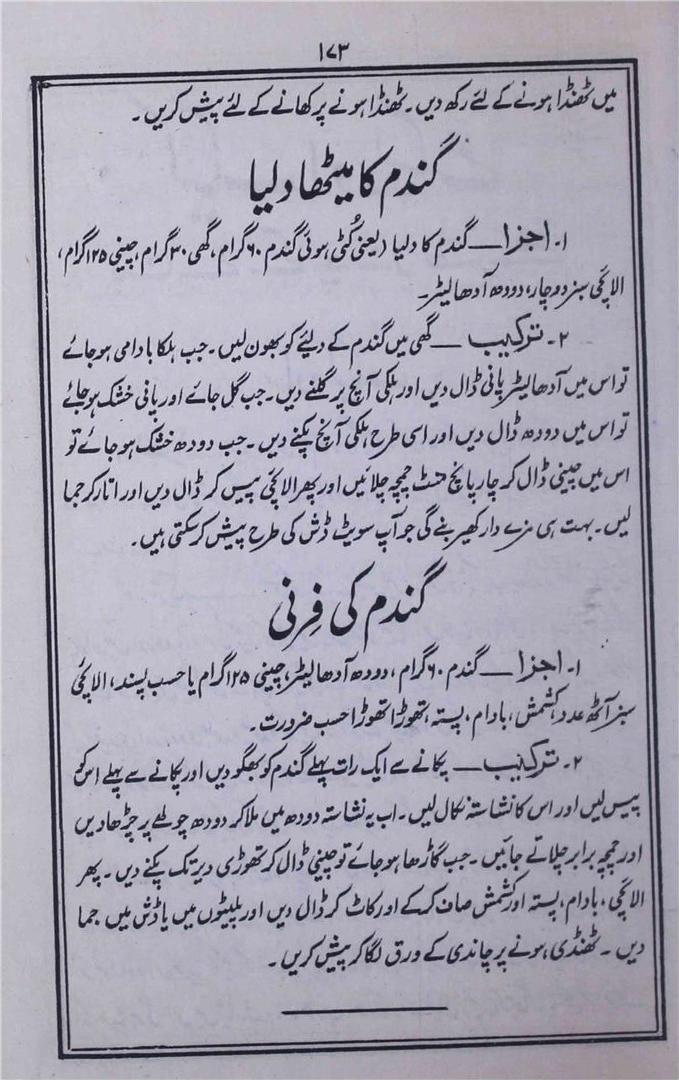 ۱۷۳
میں ٹھنڈا ہونے کے لئے رکھ دیں۔ ٹھنڈا ہونے پر کھانے کے لئے پیش کریں۔
گندم کا میٹھا دلیا
۱۔ اجزا — گندم کا دلیا (یعنی کُٹی ہوئی گندم ۶۰ گرام، گھی ۳۰ گرام، چینی ۱۲۵ گرام،
الائچی سبز دو چار، دودھ آدھا لیٹر۔
۲۔ ترکیب — گھی میں گندم کے دلیئے کو بھون لیں۔ جب ہلکا بادامی ہو جائے
تو اس میں آدھا لیٹر پانی ڈال دیں اور ہلکی آنچ پر گلنے دیں۔ جب گل جائے اور پانی خشک ہو جائے
تو اس میں دودھ ڈال دیں اور اسی طرح ہلکی آنچ پکنے دیں۔ جب دودھ خشک ہو جائے تو
اس میں چینی ڈال کر چار پانچ منٹ چمچہ چلائیں اور پھر الائچی پیس کر ڈال دیں اور اتار کر جما
لیں۔ بہت ہی مزے دار کھیر بنے گی جو آپ سویٹ ڈش کی طرح پیش کر سکتی ہیں۔
گندم کی فِرنی
۱۔ اجزا — گندم ۶۰ گرام، دودھ آدھا لیٹر، چینی ۱۲۵ گرام یا حسب پسند، الائچی
سبز آٹھ عدد، کشمش، بادام، پستہ، تھوڑا تھوڑا حسب ضرورت۔
۲۔ ترکیب — پکانے سے ایک رات پہلے گندم کو بھگو دیں اور پکانے سے پہلے اس کو
پیس لیں اور اس کا نشاستہ نکال لیں۔ اب یہ نشاستہ دودھ میں ملا کر دودھ چولھے پر چڑھا دیں
اور چمچہ برابر چلاتے جائیں۔ جب گاڑھا ہو جائے تو چینی ڈال کر تھوڑی دیر تک پکنے دیں۔ پھر
الائچی، بادام، پستہ اور کشمش صاف کر کے اور کاٹ کر ڈال دیں اور پلیٹوں میں یا ڈش میں جما
دیں۔ ٹھنڈی ہونے پر چاندی کے ورق لگا کر پیش کریں۔